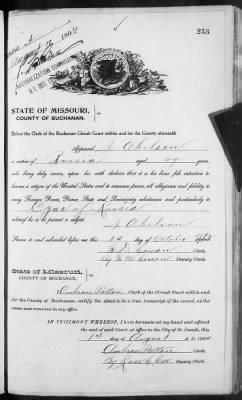 253
STATE OF MISSOURI,
COUNTY OF BUCHANAN.
Before the Clerk of the Buchanan Circuit Court within and for the County aforesaid:
Appeared J. Abelson
a native of Russia aged 29 years,
who being duly sworn, upon his oath declares that it is his bona fide intention to
become a citizen of the United States and to renounce forever, all allegiance and fidelity to
any Foreign Power, Prince, State and Sovereignty whatsoever and particularly to
Czar of Russia
whereof he is at present a subject.
J. Abelson
Sworn to and subscribed before me this 1st day of October
Clerk.
Deputy Clerk.
State of Missouri,
COUNTY OF BUCHANAN.
I, Ambrose Patton Clerk of the Circuit Court within and
for the County of Buchanan, certify the above to be a true transcript of the record, as the
same now remains in my office.
IN TESTIMONY WHEREOF, I have hereunto set my hand and affixed
the seal of said Court, at office in the City of St. Joseph, this
1st day of August A. D. 1904
Ambrose Patton
Clerk.
By Ross C. Cox Deputy Clerk.